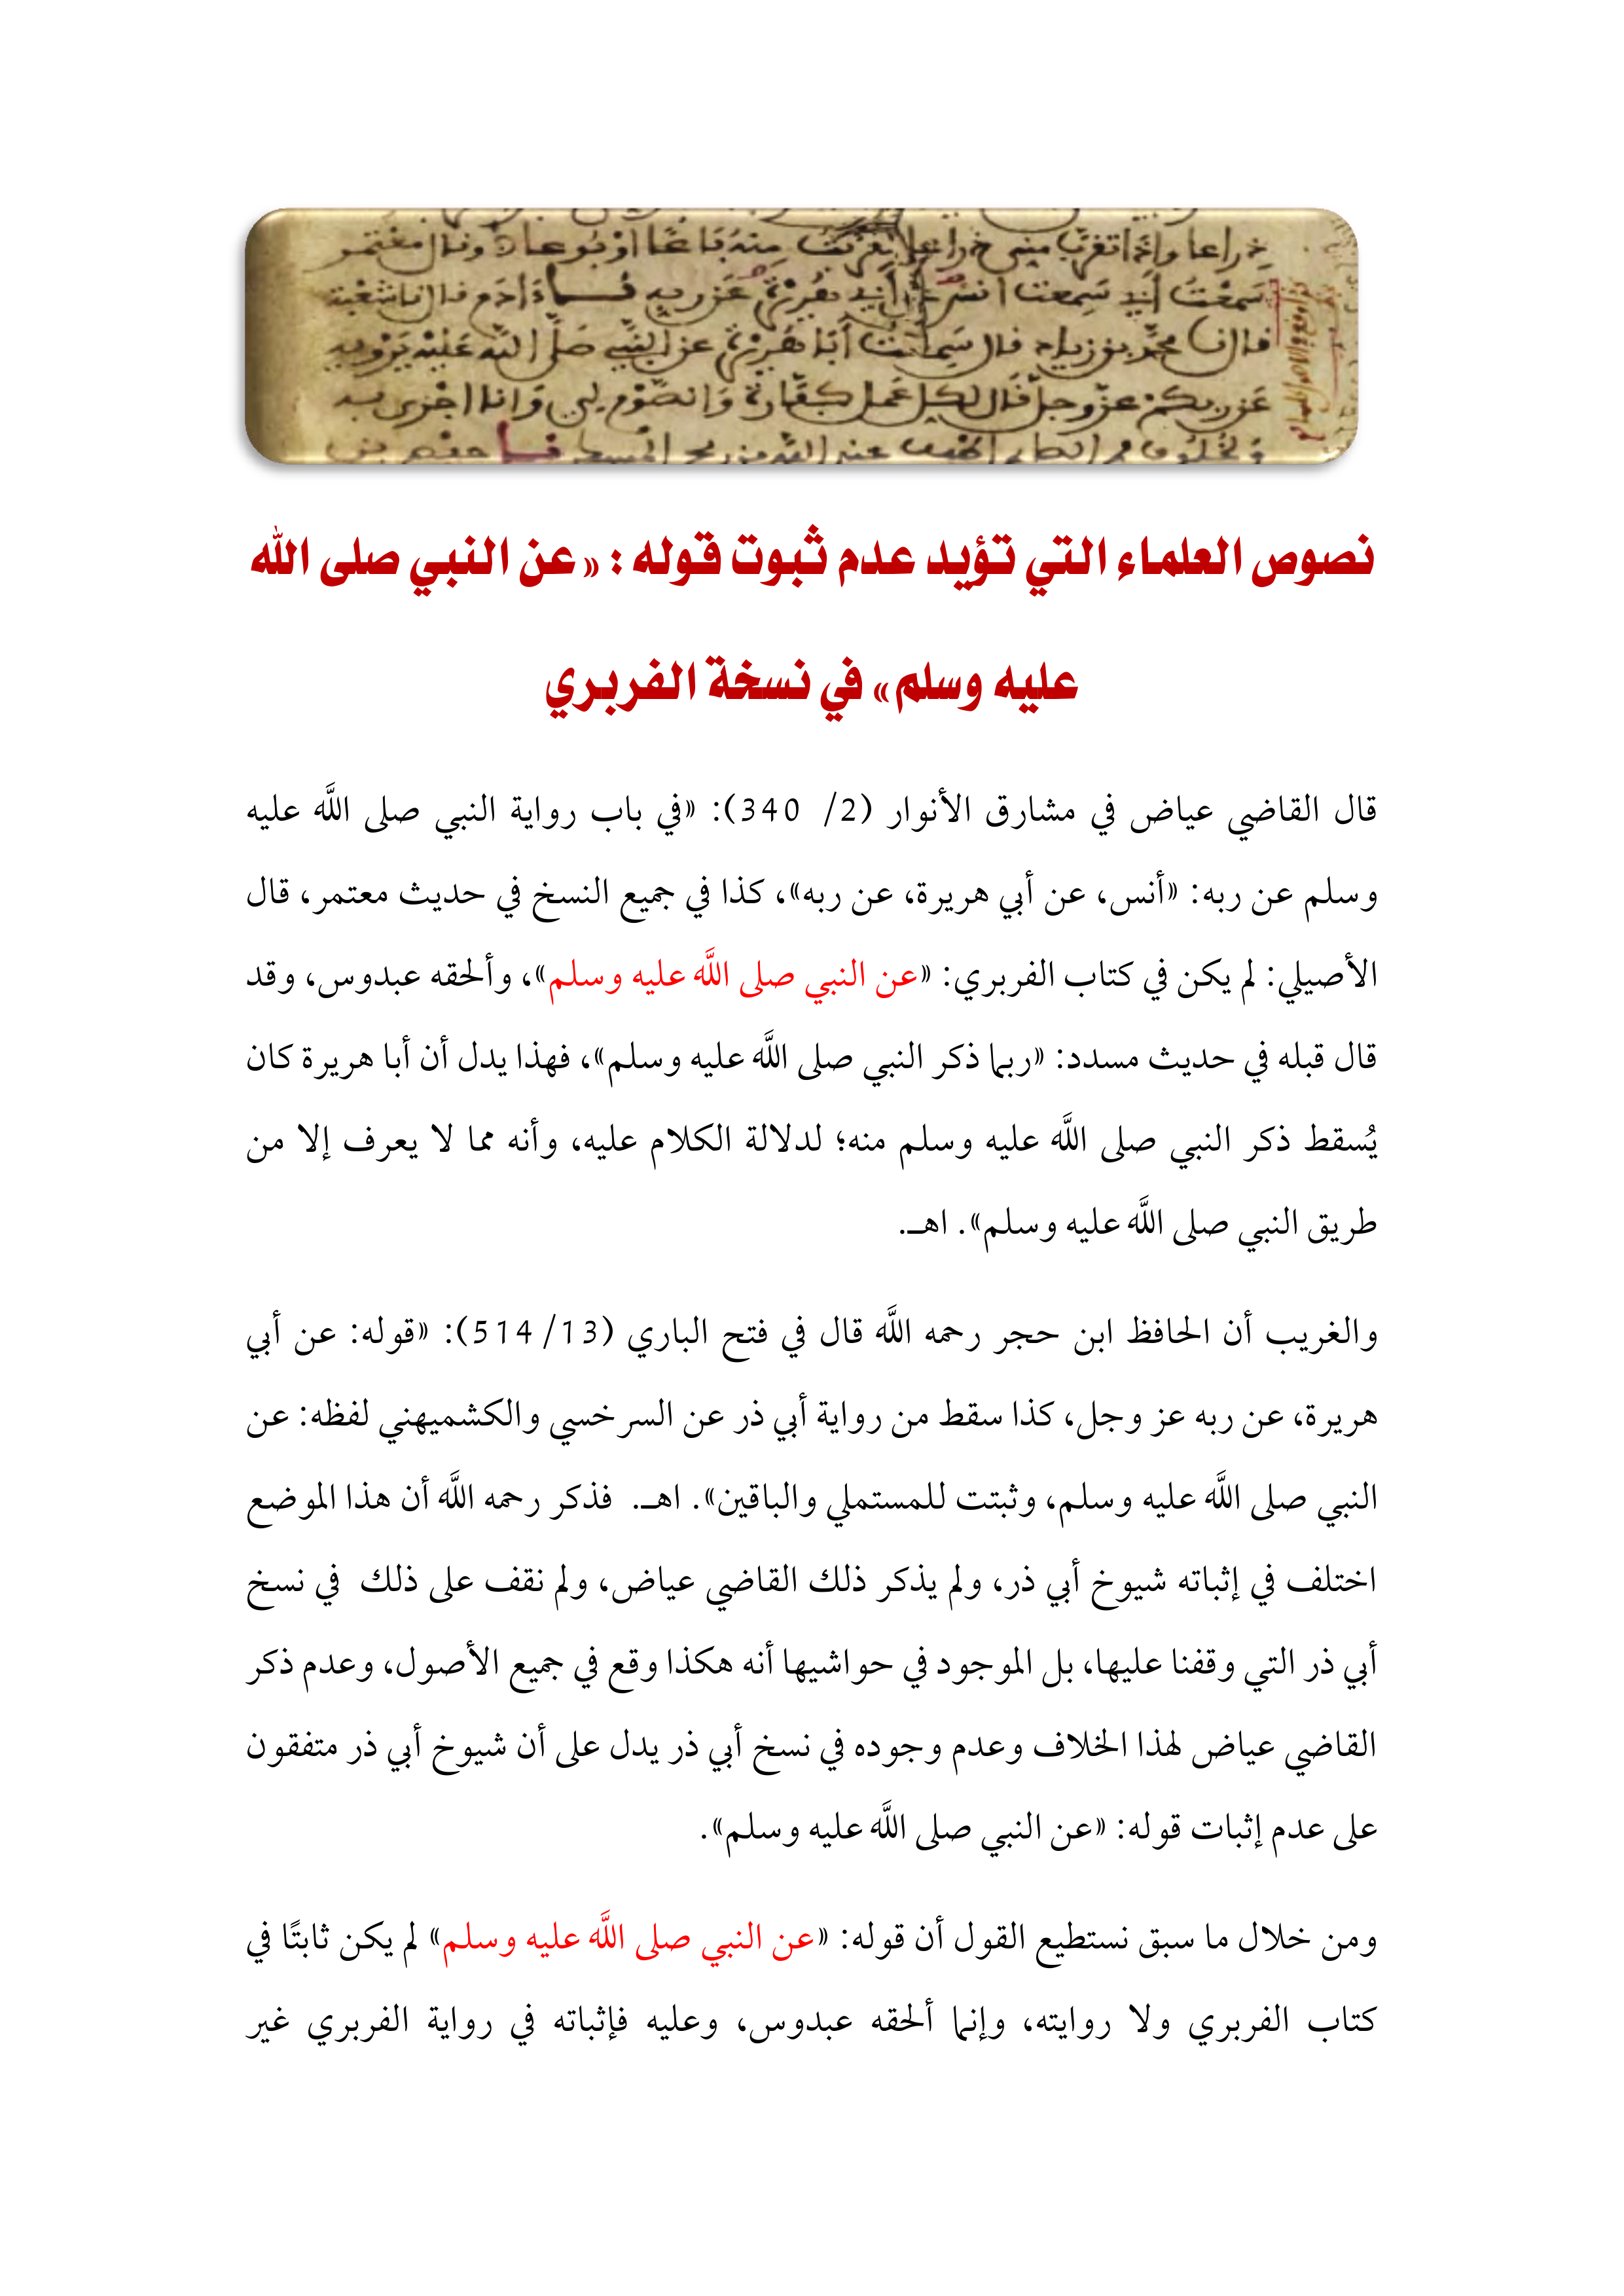 ذراعا واذا تقرب مني ذراعا تقربت منه باعا او بوعا وقال معتمر
سمعت ابي سمعت انس عن ابي هريرة عن ربه ادم قال نا شعبة
قال نا محمد بن زياد قال سمعت أبا هريرة عن النبي صلى الله عليه يرويه
عن ربكم عز وجل قال لكل عمل كفارة والصوم لي وانا اجزي به
نصوص العلماء التي تؤيد عدم ثبوت قوله : «عن النبي صلى الله
عليه وسلم» في نسخة الفربري
قال القاضي عياض في مشارق الأنوار (2/ 340): «في باب رواية النبي صلى الله عليه
وسلم عن ربه: «أنس، عن أبي هريرة، عن ربه»، كذا في جميع النسخ في حديث معتمر، قال
الأصيلي: لم يكن في كتاب الفربري: «عن النبي صلى الله عليه وسلم»، وألحقه عبدوس، وقد
قال قبله في حديث مسدد: «ربما ذكر النبي صلى الله عليه وسلم»، فهذا يدل أن أبا هريرة كان
يُسقط ذكر النبي صلى الله عليه وسلم منه؛ لدلالة الكلام عليه، وأنه مما لا يعرف إلا من
طريق النبي صلى الله عليه وسلم». اهـ.
والغريب أن الحافظ ابن حجر رحمه الله قال في فتح الباري (13/ 514): «قوله: عن أبي
هريرة، عن ربه عز وجل، كذا سقط من رواية أبي ذر عن السرخسي والكشميهني لفظه: عن
النبي صلى الله عليه وسلم، وثبتت للمستملي والباقين». اهـ. فذكر رحمه الله أن هذا الموضع
اختلف في إثباته شيوخ أبي ذر، ولم يذكر ذلك القاضي عياض، ولم نقف على ذلك في نسخ
أبي ذر التي وقفنا عليها، بل الموجود في حواشيها أنه هكذا وقع في جميع الأصول، وعدم ذكر
القاضي عياض لهذا الخلاف وعدم وجوده في نسخ أبي ذر يدل على أن شيوخ أبي ذر متفقون
على عدم إثبات قوله: «عن النبي صلى الله عليه وسلم».
ومن خلال ما سبق نستطيع القول أن قوله: «عن النبي صلى الله عليه وسلم» لم يكن ثابتًا في
كتاب الفربري ولا روايته، وإنما ألحقه عبدوس، وعليه فإثباته في رواية الفربري غير